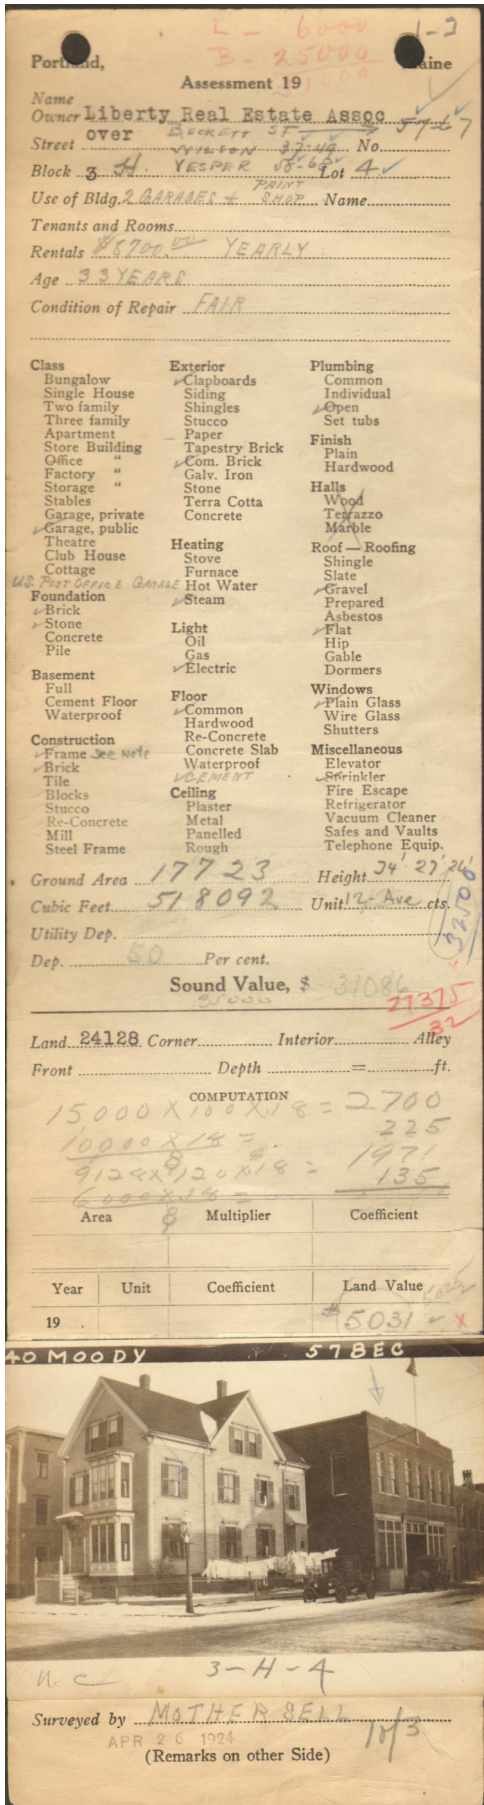 L - 6000
1-3
B - 25000
31000
Portland, Maine
Assessment 19
Name
Owner Liberty Real Estate Assoc 57-67
over BECKETT ST
Street WILSON 37-49 No.
Block 3 H VESPER 58-68 Lot 4
Use of Bldg. 2 GARAGES & PAINT SHOP Name
Tenants and Rooms
Rentals $8700.00 YEARLY
Age 33 YEARS
Condition of Repair FAIR
Class
Bungalow
Single House
Two family
Three family
Apartment
Store Building
Office "
Factory "
Storage "
Stables
Garage, private
Garage, public
Theatre
Club House
Cottage
U.S. POST OFFICE GARAGE
Foundation
Brick
Stone
Concrete
Pile
Basement
Full
Cement Floor
Waterproof
Construction
Frame See Note
Brick
Tile
Blocks
Stucco
Re-Concrete
Mill
Steel Frame
Exterior
Clapboards
Siding
Shingles
Stucco
Paper
Tapestry Brick
Com. Brick
Galv. Iron
Stone
Terra Cotta
Concrete
Heating
Stove
Furnace
Hot Water
Steam
Light
Oil
Gas
Electric
Floor
Common
Hardwood
Re-Concrete
Concrete Slab
Waterproof
CEMENT
Ceiling
Plaster
Metal
Panelled
Rough
Plumbing
Common
Individual
Open
Set tubs
Finish
Plain
Hardwood
Halls
Wood
Terrazzo
Marble
Roof — Roofing
Shingle
Slate
Gravel
Prepared
Asbestos
Flat
Hip
Gable
Dormers
Windows
Plain Glass
Wire Glass
Shutters
Miscellaneous
Elevator
Sprinkler
Fire Escape
Refrigerator
Vacuum Cleaner
Safes and Vaults
Telephone Equip.
Ground Area 17723 Height 34' 27' 26'
Cubic Feet 518092 Unit 12- Ave cts.
32500
Utility Dep.
Dep. 50 Per cent.
Sound Value, $ 31086
35000
27375
32
Land 24128 Corner Interior Alley
Front Depth = ft.
COMPUTATION
15,000 X 100 X .18 = 2700
10000 X 18 = 225
8
9128 X 120 X 18 = 1971
6000 X 18 = 135
8
Area Multiplier Coefficient
Year Unit Coefficient Land Value
5025
19 . $5031 X
40 MOODY 57 BEC
N. C 3-H-4
Surveyed by MOTHERSELL
APR 26 1924
1 of 3
(Remarks on other Side)